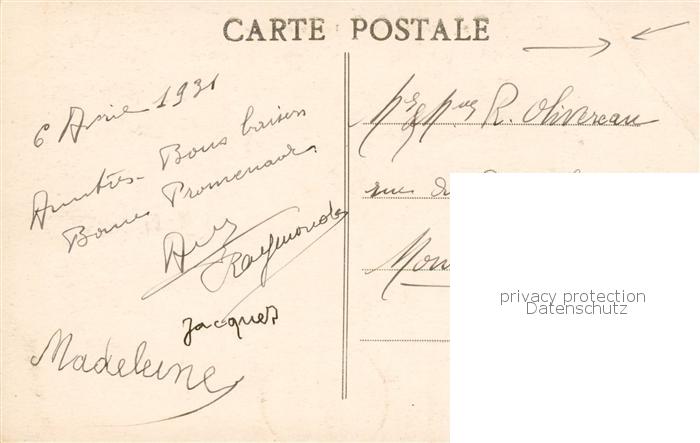 CARTE POSTALE
6 Avril 1931
Bons baisers
Bonne Promenade
Raymonde
Jacques
Madeleine
R. Olivereau
rue
privacy protection
Datenschutz